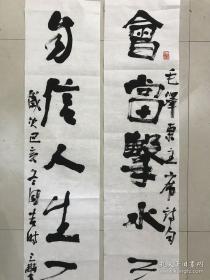 會當擊水三
毛澤東主席詩句
自信人生二
歲次己亥冬